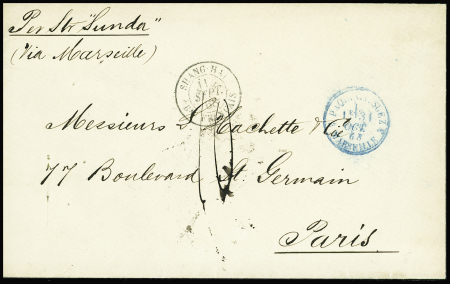 Per Str "Sunda"
(Via Marseille)
SHANG-HAI
11
SEPT.
Messieurs L. Hachette & Co
77 Boulevard St. Germain
Paris